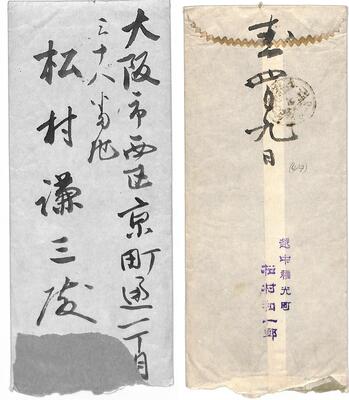 大阪市西区京町通一丁目
三十八番地
松村謙三殿
四月九日
越中福光町
松村和一郎